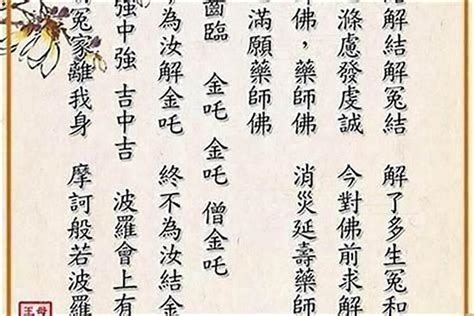 解結解冤結　解了多生冤和
滌慮發虔誠　今對佛前求解
師佛，藥師佛　消災延壽藥師
滿願藥師佛
齒臨　金吒　金吒　僧金吒
不為汝解金吒　終不為汝結金
強中強　吉中吉　波羅會上有
冤家離我身　摩訶般若波羅